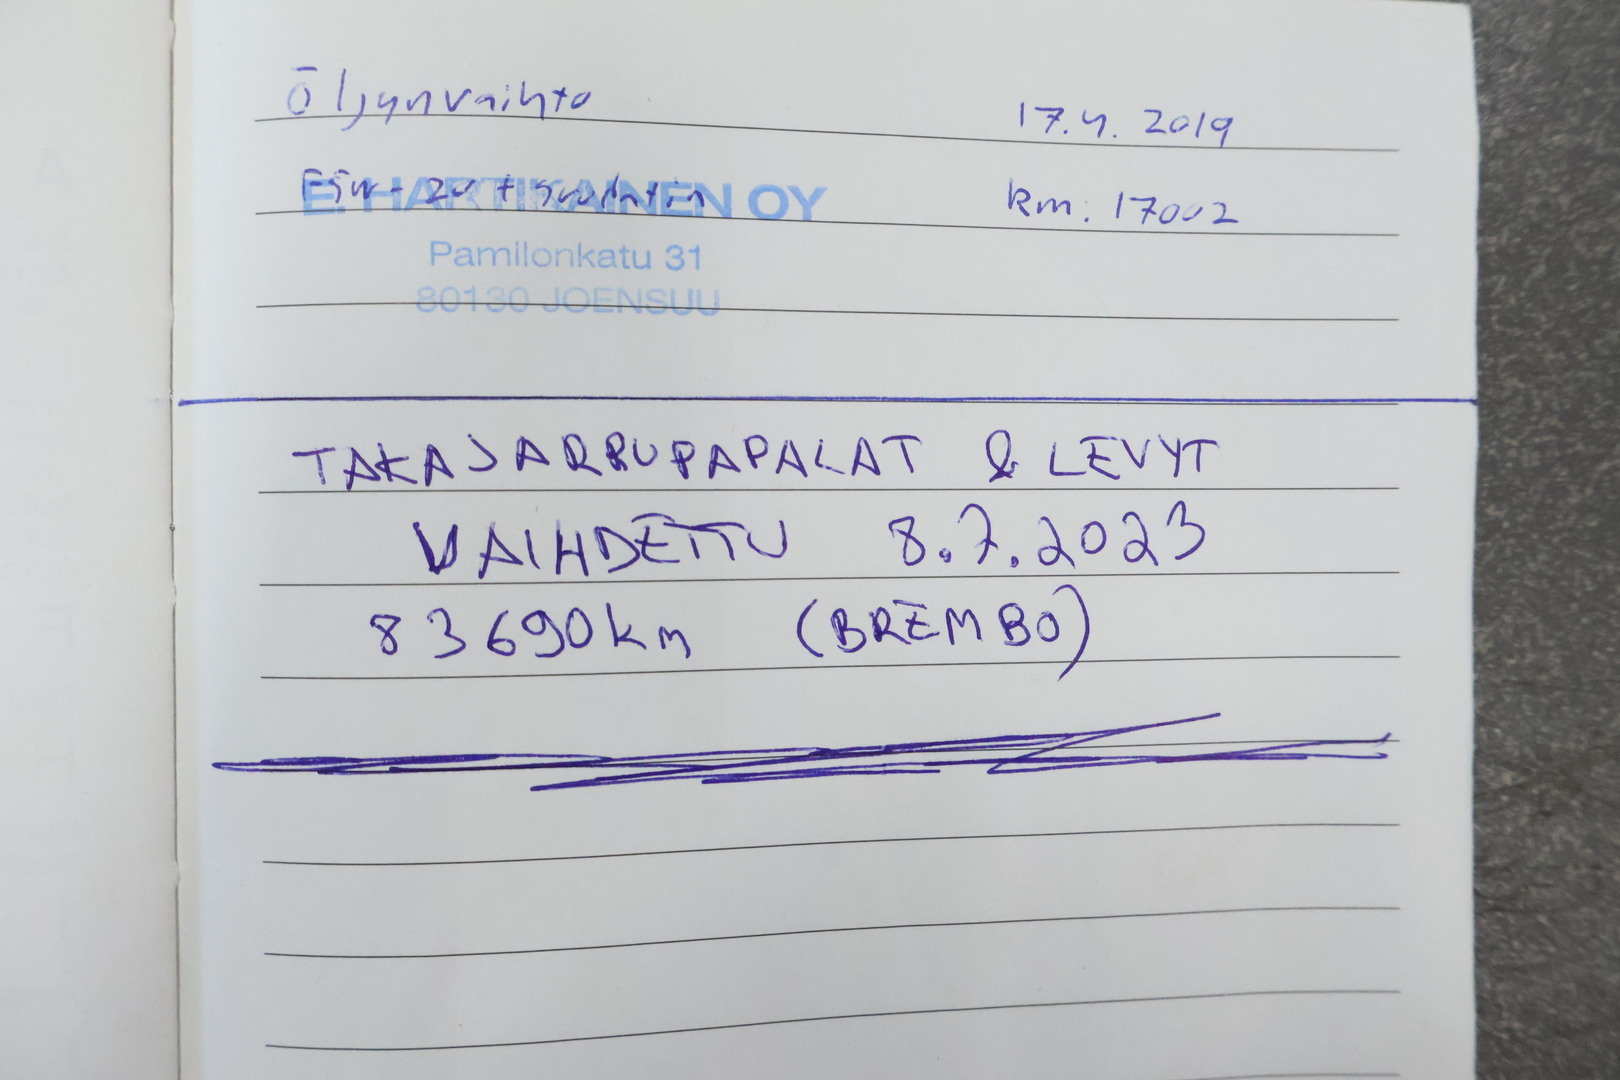 Öljynvaihto 17.4. 2019
E. HARTIKAINEN OY
+ suodatin km. 17002
Pamilonkatu 31
80130 JOENSUU
TAKAJARRUPAPALAT & LEVYT
VAIHDETTU 8.7.2023
83690km (BREMBO)